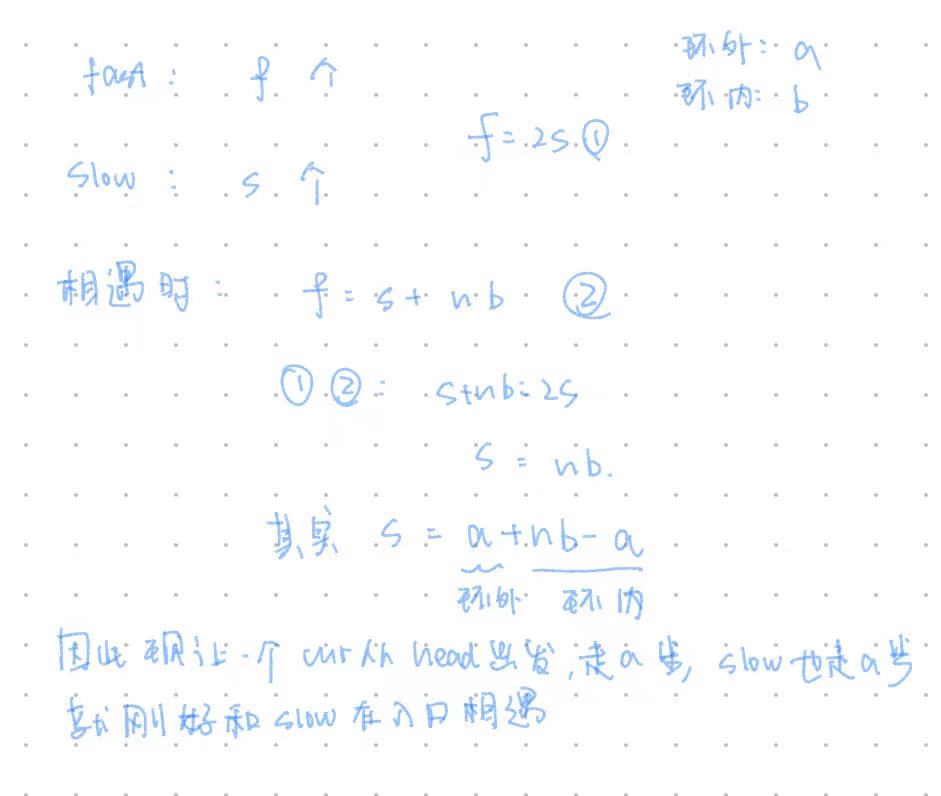 fast： f 个
环外：a
环内：b
f=2s ①
slow： s 个
相遇时： f=s+n·b ②
①②： s+nb=2s
s=nb.
其实 s=a+nb-a
环外 环内
因此 现让一个 cur 从 head 出发，走a步，slow也走a步
就刚好和slow在入口相遇